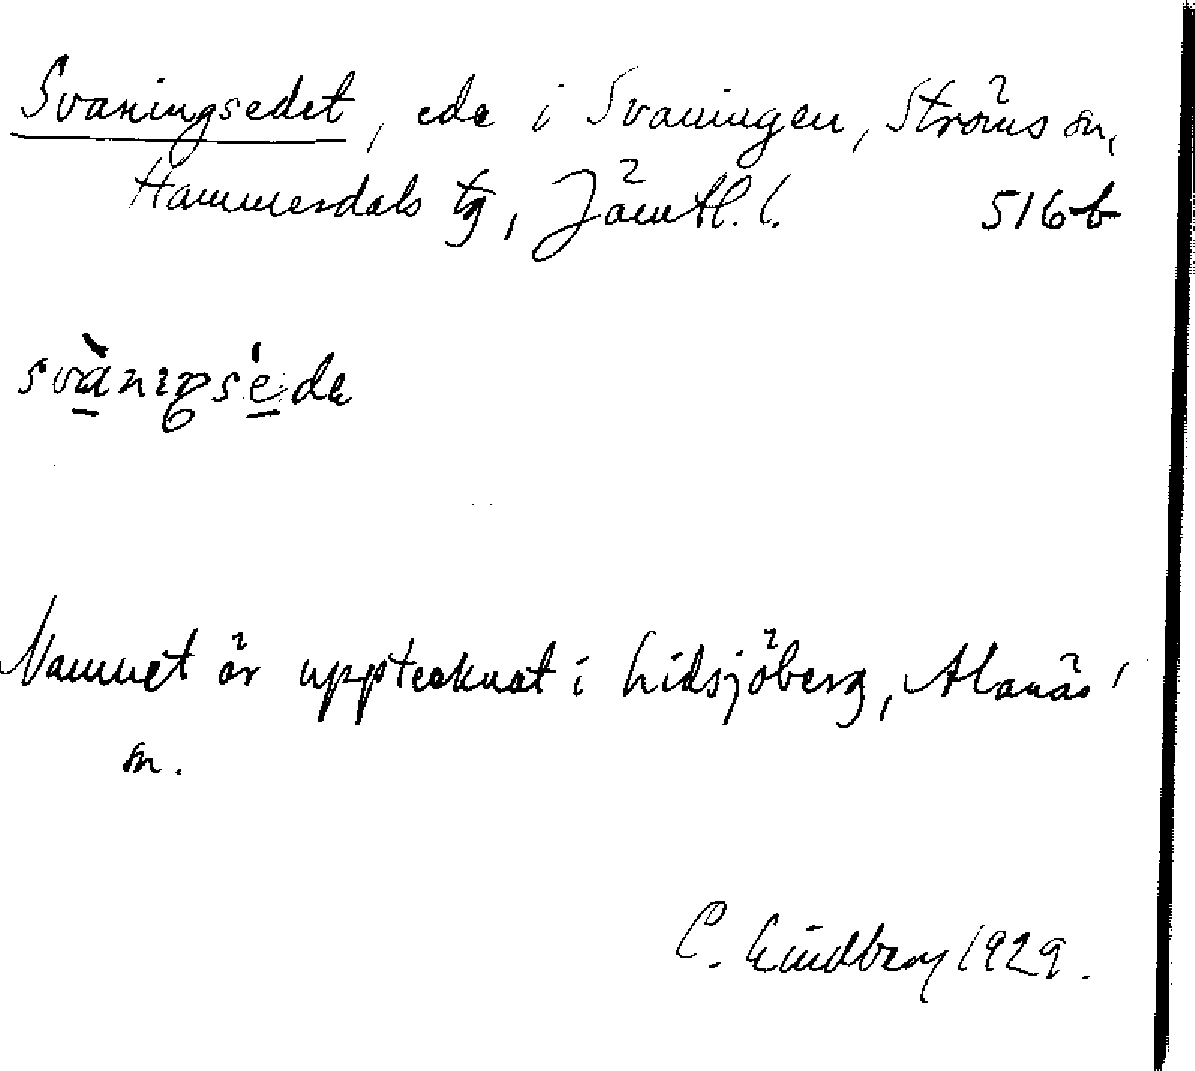 Svaningsedet, ede i Svaningen, Ströms sn,
Hammerdals tg, Jämtl. l. 516 b
svànıŋséde
Namnet är upptecknat i Lidsjöberg, Alanäs
sn.
C. Lindberg 1929.